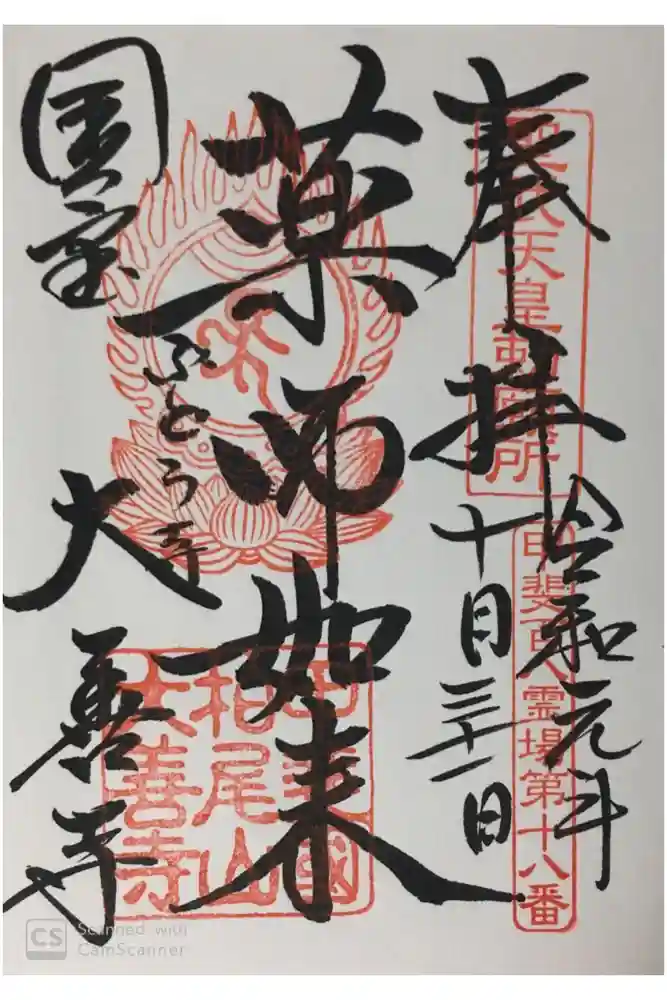 奉拝
令和元年
十月三十一日
聖武天皇勅願所
甲斐百八霊場第十八番
薬師如来
国宝
ぶどう寺
大善寺
甲斐國
柏尾山
大善寺
CS Scanned with
CamScanner